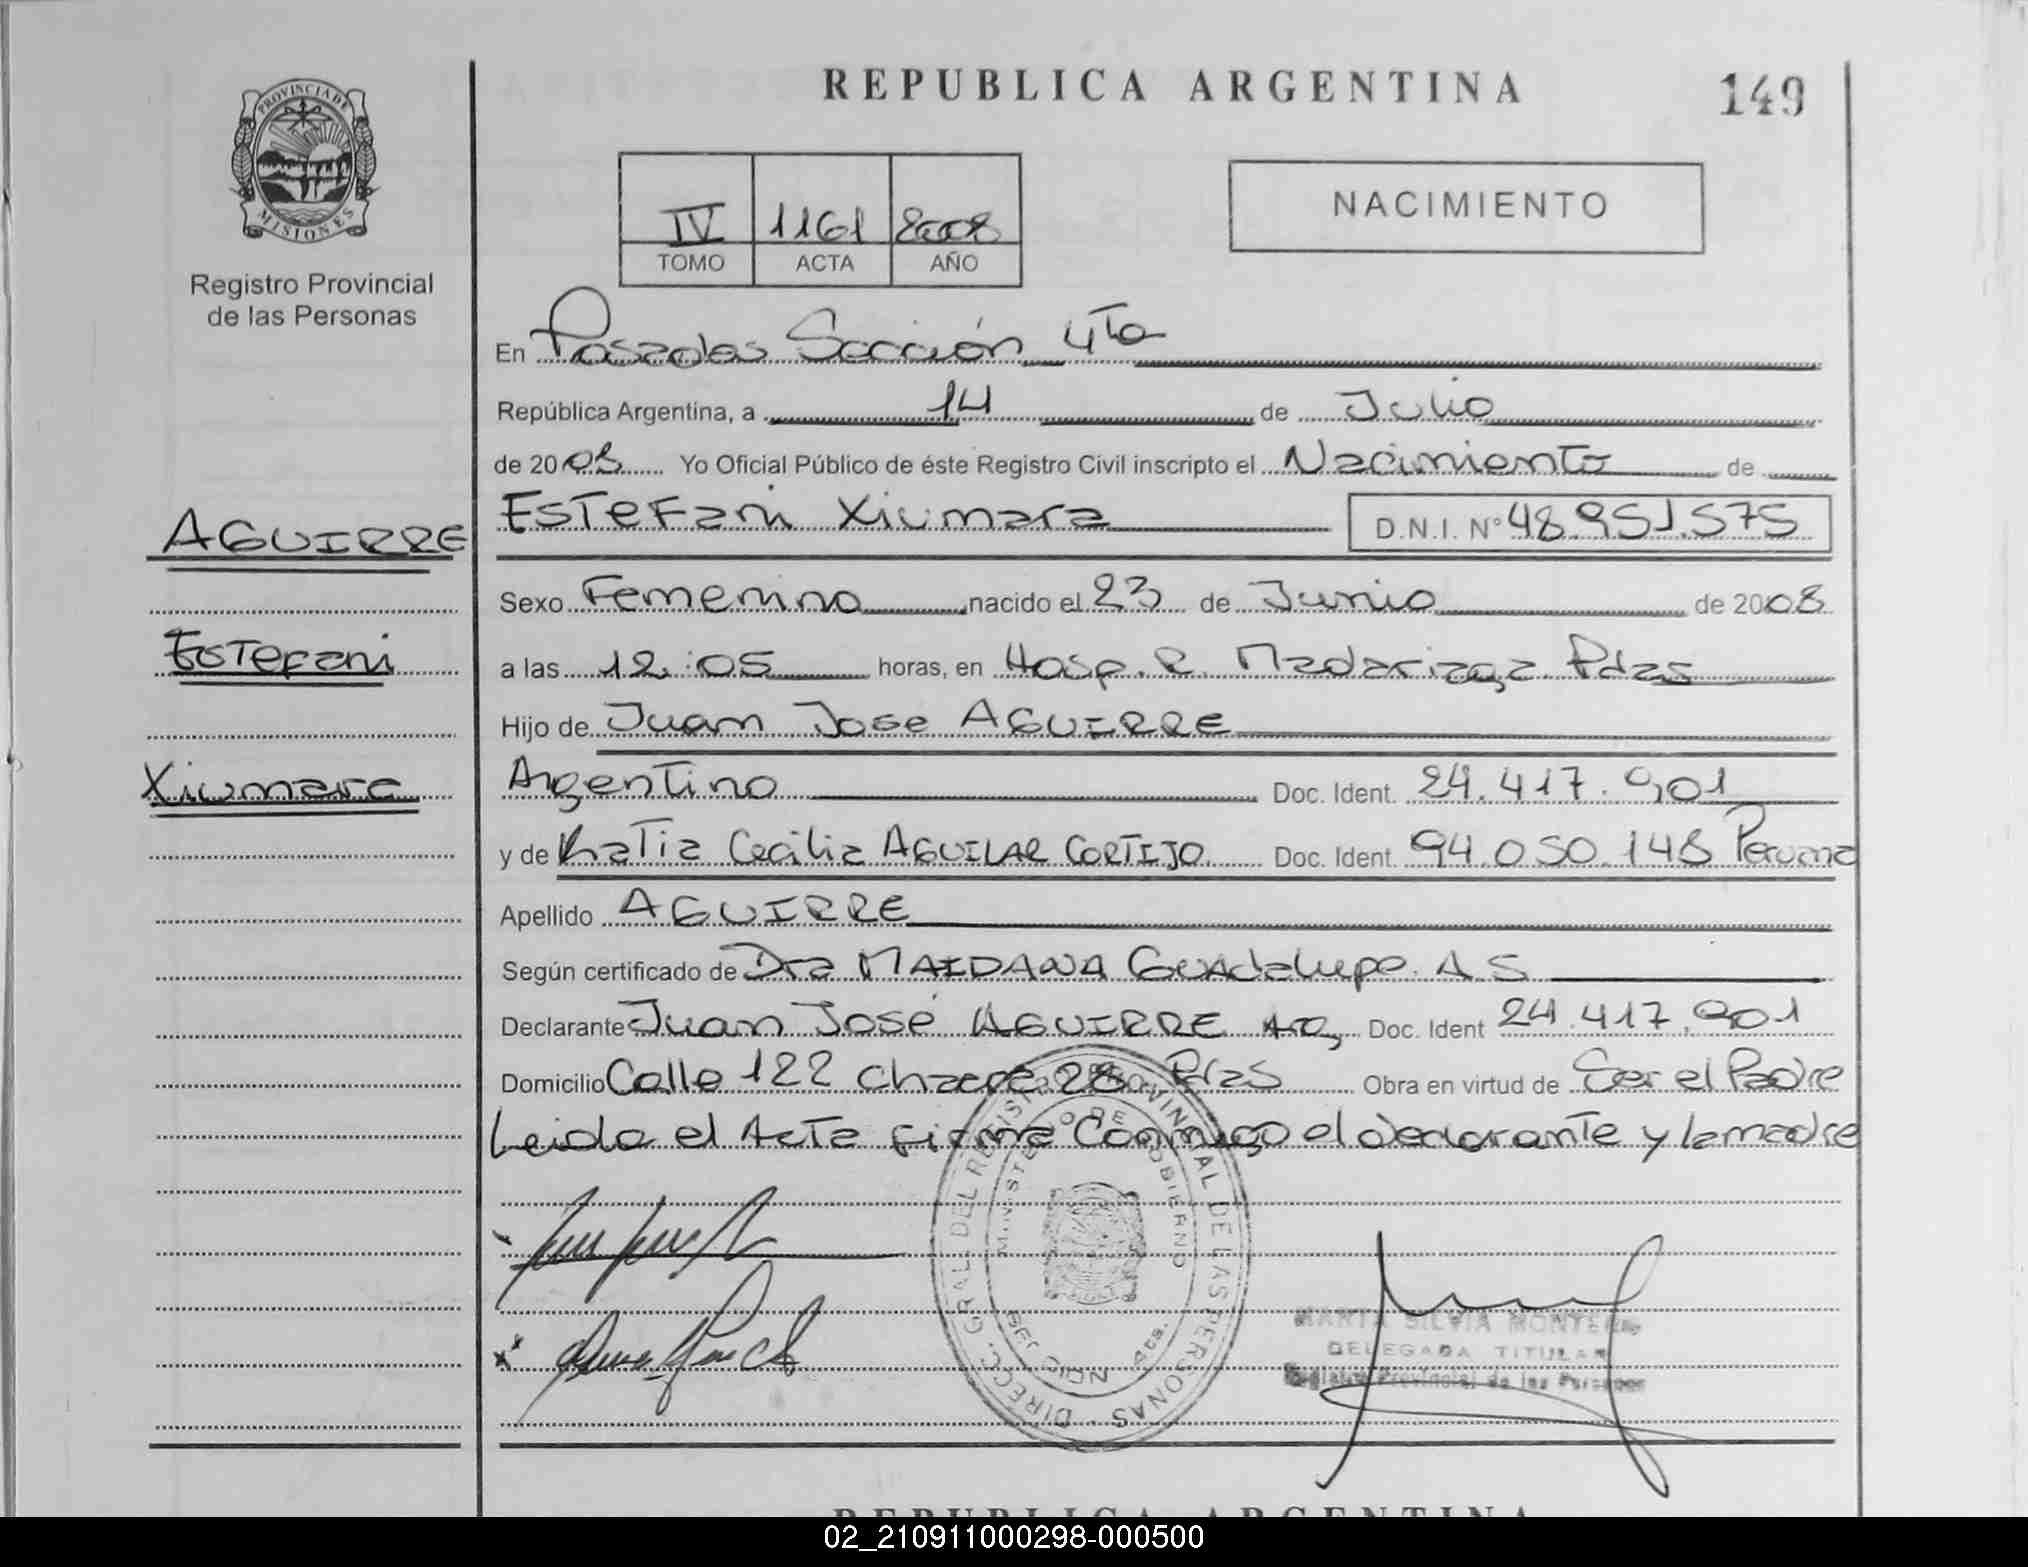 REPUBLICA ARGENTINA
149
PROVINCIA DE
MISIONES
Registro Provincial
de las Personas
NACIMIENTO
IV 1161 2008
TOMO ACTA AÑO
En Posadas Sección 4ta
República Argentina, a 14 de Julio
de 2008 Yo Oficial Público de éste Registro Civil inscripto el Nacimiento de
AGUIRRE
Estefani Xiumara D.N.I. Nº 48.951.575
Sexo Femenino nacido el 23 de Junio de 2008
Estefani
a las 12:05 horas, en Hosp. R. Madariaga Pdas
Hijo de Juan Jose AGUIRRE
Xiumara
Argentino Doc. Ident. 24.417.901
y de Katia Cecilia AGUILAR CORTIJO Doc. Ident. 94.050.148 Peruana
Apellido AGUIRRE
Según certificado de Dra MAIDANA Guadalupe. A S
Declarante Juan José AGUIRRE Arg. Doc. Ident 24.417.901
Domicilio Calle 122 Chacra 28 Pdas Obra en virtud de Ser el Padre
Leida el Acta firma Conmigo el declarante y la madre
DIRECC. GRAL. DEL REGISTRO PROVINCIAL DE LAS PERSONAS
MINISTERIO DE GOBIERNO
MARTA SILVIA MONTERO
DELEGADA TITULAR
Registro Provincial de las Personas
REPUBLICA ARGENTINA
02_210911000298-000500